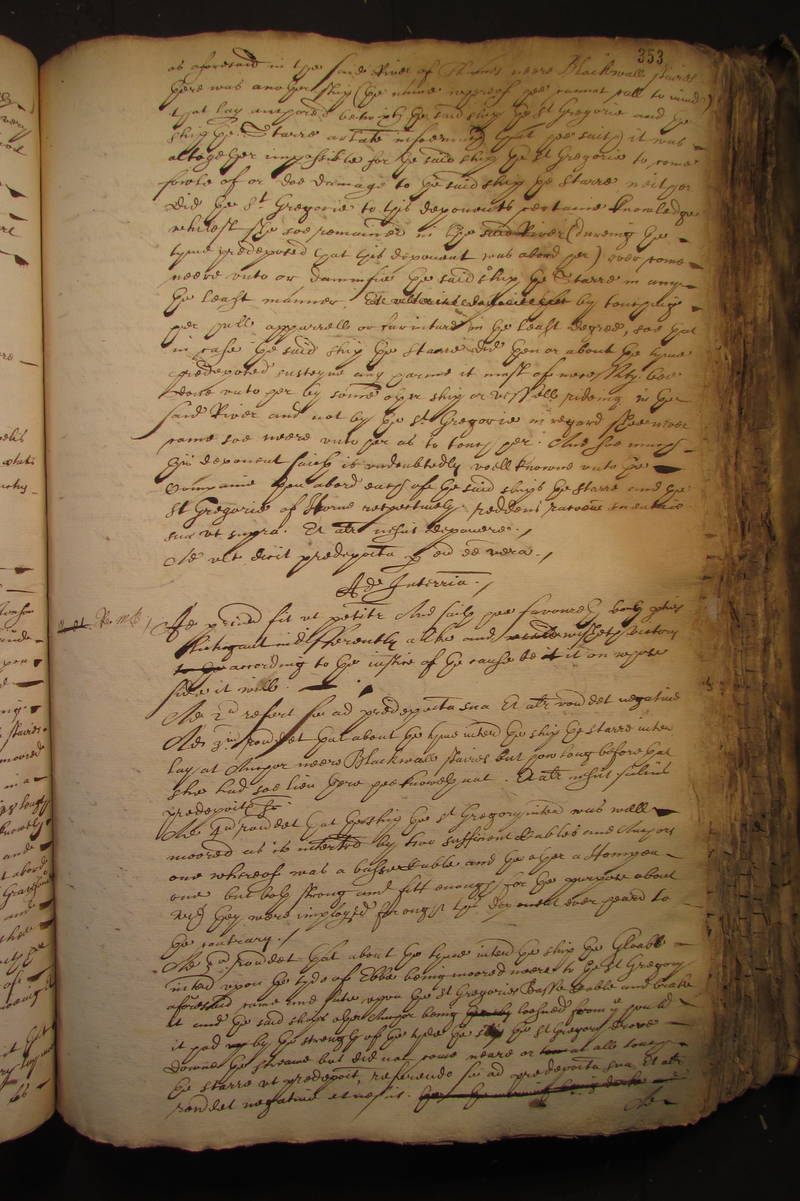 353
as aforesaid in the said River of Thames neere Blackwall staires
there was another ship (the name whereof hee cannot call to mind)
that lay anchored betwixt the said ship the St Gregorie and the
ship the Starre arlate insomuch that hee saith it was
altogether impossible for the said ship the St Gregorie to come
fowle of or doe damage to the said ship the Starre neither
did the St. Gregorie to this deponents certaine knowledge
whilest she soe remained in the said River (dureing the
tyme predeposed that this deponent was abord her) ever come
neere unto or damnifie the said ship the Starre in any
the least manner by touching
her hull apparrell or furniture in the least degree, soe that
in case the said ship the Starre did then or about the tyme
predeposed susteyne any harme it must of necessity bee
done unto her by some other ship or vessell rideing in the
said River and not by the St Gregorie in regard shee never
came soe neere unto her as to touch her. And soe much
this deponent saith is undoubtedly well knowne unto the
companie then abord each of the said ships the Starre and the
St Gregorie of Horne respectively reddens rationem scientiae
suae ut supra. Et aliter nescit deponere./
Ad ult dicit predeposita per eum esse vera./
Ad Interria./
Ad primum fit ut petitur And saith hee favoureth both parties
litigant indifferently alike and wisheth victory
to the according to the justice of the cause be it on whose
side it will.
Ad 2um refert se ad predeposita sua Et aliter rondet negative
Ad 3um rondet that about the tyme interr the ship the Starre interr
lay at Anchor neere Blackwall staires but how long before that
she had soe lien there hee knoweth not. Et aliter nescit salvis
predepositis
Ad 4um rondet that the ship the St Gregory interr was well
moored as is interted by two sufficient Cables and Anchors
one whereof was a basse Cable and the other a Hempen
one but both strong and fitt enough for the purpose about
which they were imployed for ought this deponent ever heard to
the contrary./
Ad 5um rondet that about the tyme interr the ship the Gloabe
interr upon the tyde of Ebbe being moored neere to the St Gregory
aforesaid came and fell upon the St Gregories Basse Cable and brake
it and the said ships other Anchor being loosned from the hould
it had by the strength of the tyde the ship the St Gregory drove
downe the streame but did not come neare or at all touch
the Starre ut predeposit, referendo se ad predeposita sua, Et aliter
rondet negative et nescit.
Ad